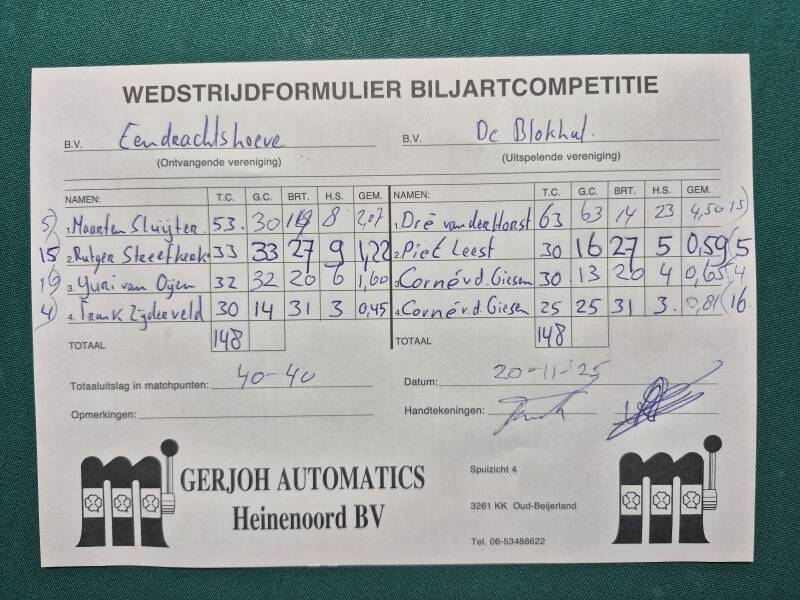 WEDSTRIJDFORMULIER BILJARTCOMPETITIE
B.V. Eendrachtshoeve B.V. De Blokhut.
(Ontvangende vereniging) (Uitspelende vereniging)
NAMEN: T.C. G.C. BRT. H.S. GEM. NAMEN: T.C. G.C. BRT. H.S. GEM.
5) 1. Maarten Sluijter 53. 30 14 8 2,07 1. Dré van der Horst 63 63 14 23 4,50 15)
15 2. Rutger Streefkerk 33 33 27 9 1,22 2. Piet Leest 30 16 27 5 0,59 5
16) 3. Yuri van Oijen 32 32 20 6 1,60 3. Corné v.d. Giesen 30 13 20 4 0,65 4
4) 4. Frank Zijderveld 30 14 31 3 0,45 4. Corné v.d. Giesen 25 25 31 3. 0,81 16.
TOTAAL 148 TOTAAL 148
Totaaluitslag in matchpunten: 40-40 Datum: 20-11-'25
Opmerkingen: Handtekeningen:
GERJOH AUTOMATICS
Heinenoord BV
Spuizicht 4
3261 KK Oud-Beijerland
Tel. 06-53488622